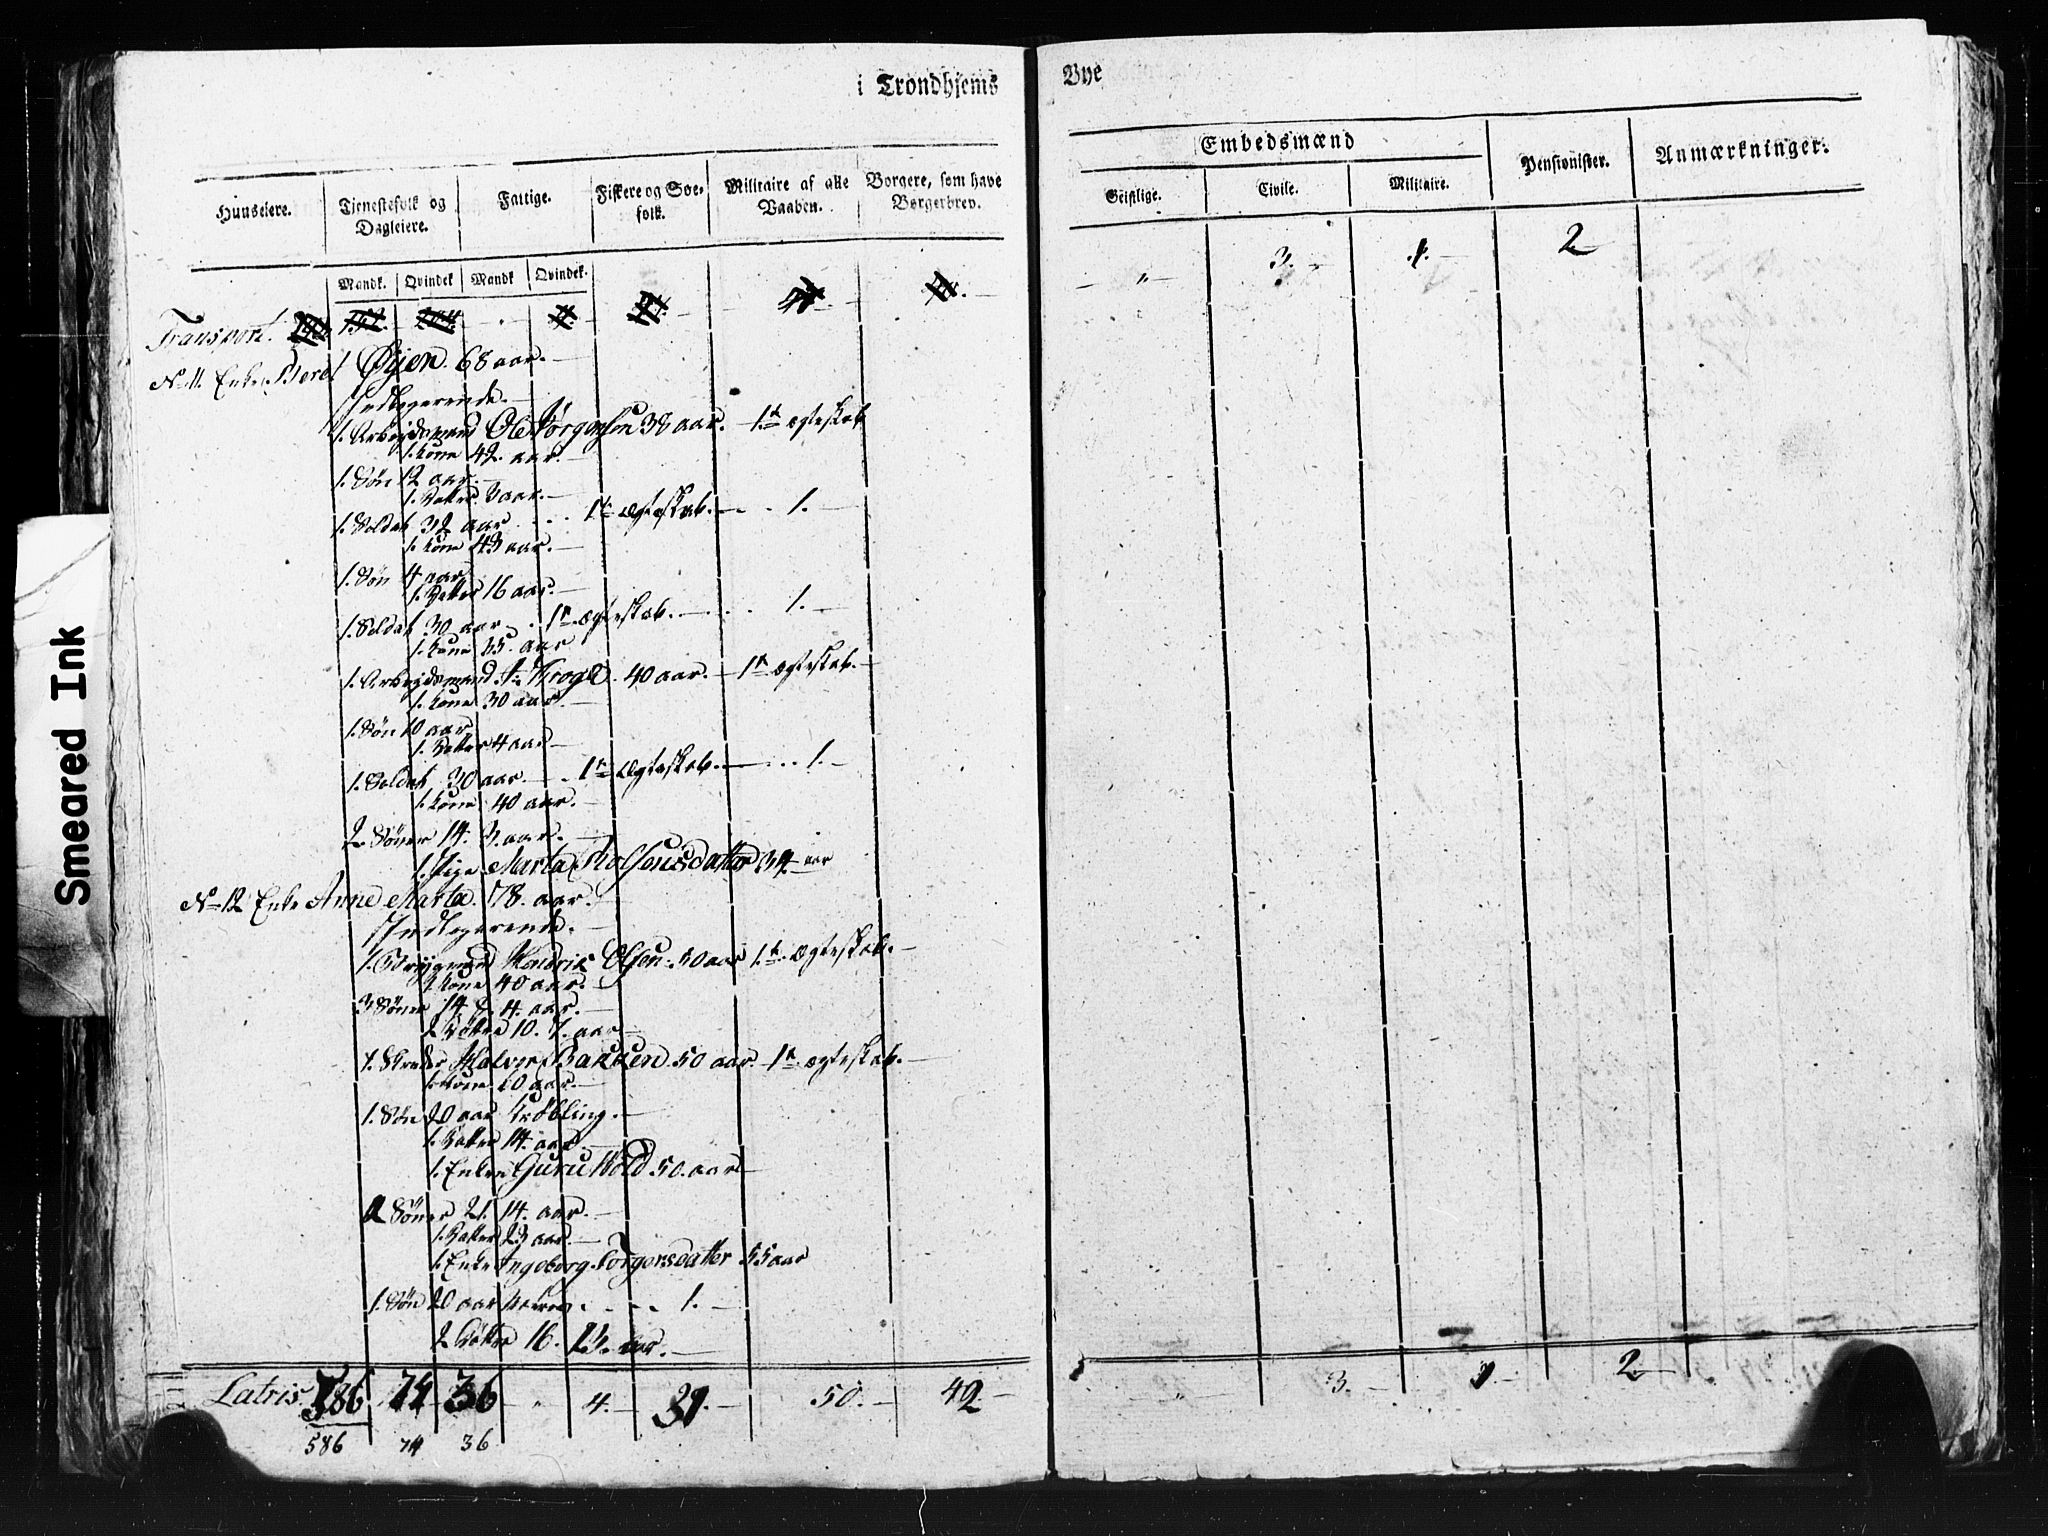 i Trondhjems Bye
Huuseiere.
Tjenestefolk og Dagleiere.
Fattige.
Fiskere og Søefolk.
Militaire af alle Vaaben.
Borgere, som have Borgerbrev.
Embedsmænd
Geistlige.
Civile.
Militaire.
Pensionister.
Anmærkninger.
Mandk. Qvindek Mandk Qvindek.
Transport.
" 3. 1. 2
N=11. Enke Beret Øyen. 68 aar.
Indlogerende.
1. Arbejdsmand Ole Jørgensen 38 aar. 1te ægteskab
1. kone 42. aar.
1. Søn 12 aar.
1. Datter 3 aar.
1. Soldat 32 aar 1te ægteskab. 1.
1. kone 43 aar.
1. Søn 4 aar
1. Datter 16 aar.
1. Soldat 30 aar 1te ægteskab. 1.
1. kone 35. aar
1. Arbejdsmand 40 aar. 1te ægteskab.
1. kone 30 aar.
1. Søn 10 aar
1. Datter 4 aar
1. Soldat 30 aar. 1te ægteskab. 1.
1. kone 40 aar.
2 Sönner 14. 3. aar.
1. Pige Marta 34 aar
N=12 Enke Anne Marta. 78. aar.
Indlogerende.
1. Hendrik Olsen. 50 aar 1te ægteskab.
1 kone 40 aar.
3 Sönner 14. 4. aar.
2 Døttre 10. 7. aar
1. Halvor Bakken 50 aar. 1te ægteskab.
1. kone 60 aar.
1. Søn 20 aar Krøbling.
1. Datter 14. aar.
1. Enken Guru 50. aar
2 Sönner 21. 14. aar.
1. Datter 23 aar.
1. Enke Ingeborg Torgersdatter 55 aar
1. Søn 20 aar 1.
2 Døttre 16. 13. aar.
Latris. 586 74 36 " 4. 31. 50. 42 " 3. 1. 2
586 74 36
Smeared Ink